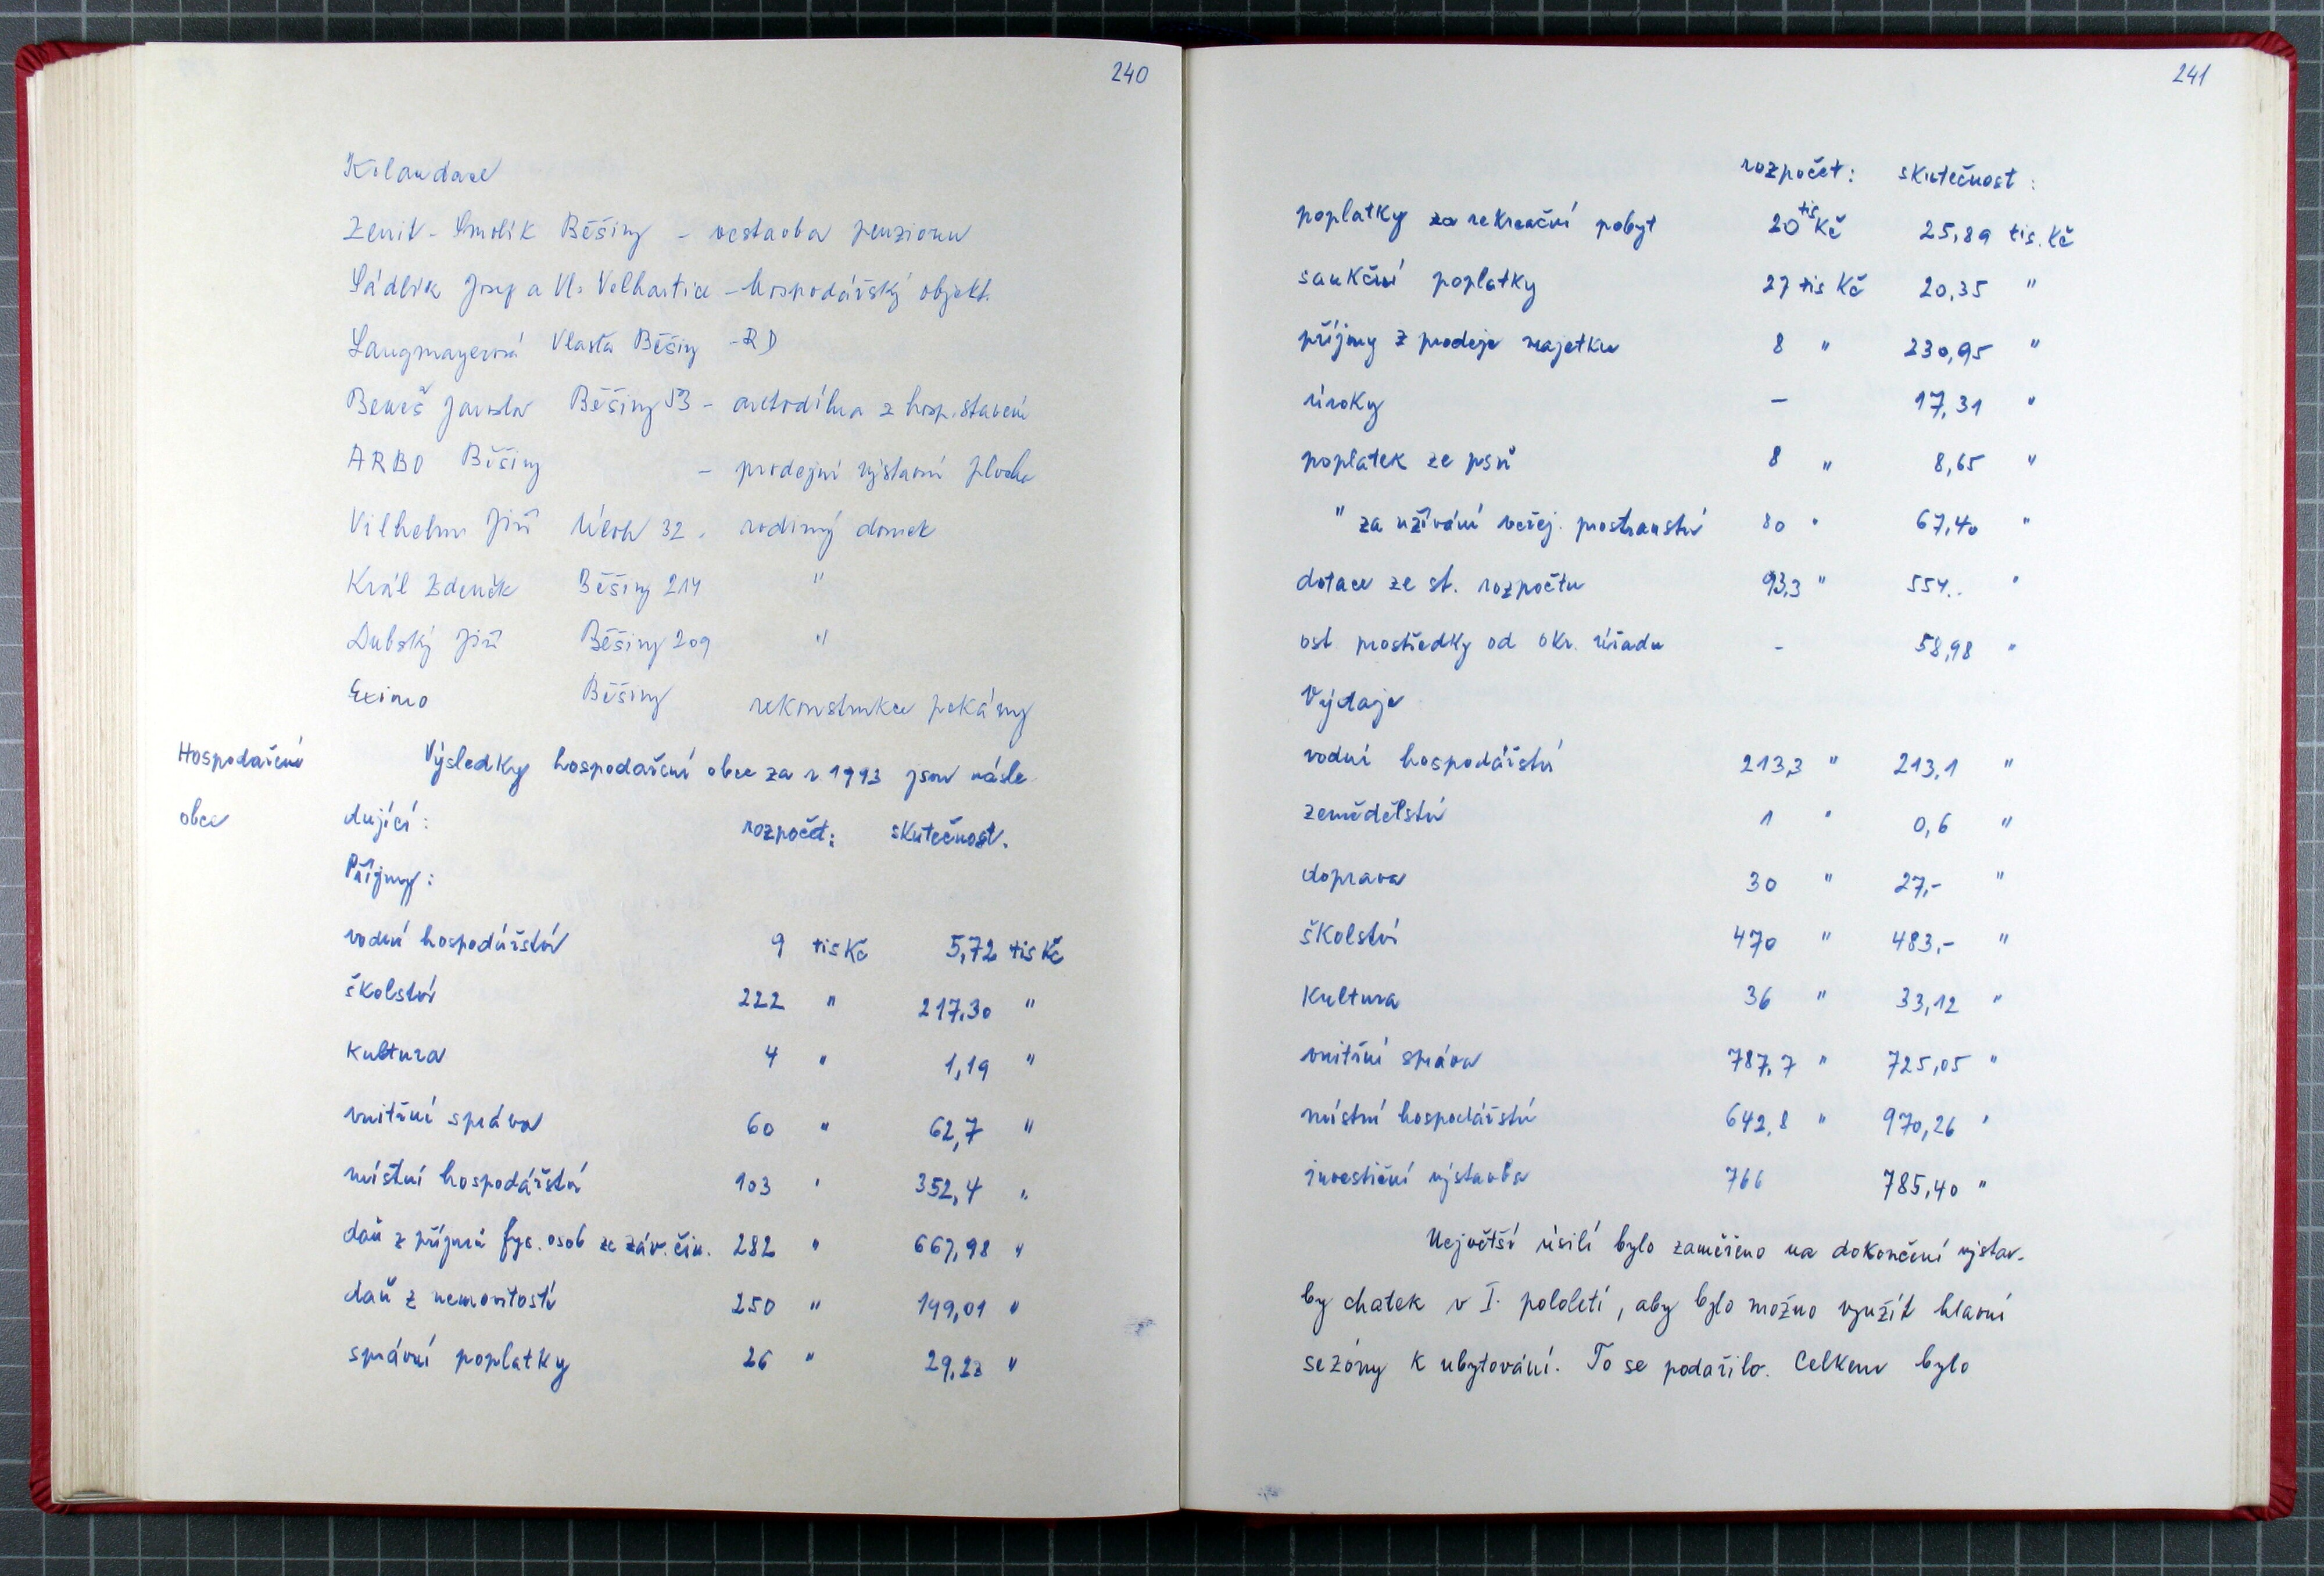 240
Kolaudace
Zenit - Smolík Běšiny - vestavba penzionu
Sádlík Josef a Vl. Velhartice - hospodářský objekt.
Langmayerová Vlasta Běšiny - RD
Beneš Jaroslav Běšiny 53 - autodílna z hosp. stavení
ARBO Běšiny - prodejní výstavní plocha
Vilhelm Jiří Úloh 32. rodinný domek
Král Zdeněk Běšiny 214 "
Dubský Jiří Běšiny 209 "
Eximo Běšiny rekonstrukce pekárny
Hospodaření Výsledky hospodaření obce za r 1993 jsou násle
obce dující: rozpočet: skutečnost.
Příjmy:
vodní hospodářství 9 tis Kč 5,72 tis Kč
školství 222 " 217,30 "
kultura 4 " 1,19 "
vnitřní správa 60 " 62,7 "
místní hospodářství 103 " 352,4 "
daň z příjmů fys. osob ze záv. čin. 282 " 667,98 "
daň z nemovitostí 250 " 199,01 "
správní poplatky 26 " "
241
rozpočet: skutečnost:
poplatky za rekreační pobyt 20 tis Kč 25,89 tis. Kč
sankční poplatky 27 tis Kč 20,35 "
příjmy z prodeje majetku 8 " 230,95 "
úroky - 17,31 "
poplatek ze psů 8 " 8,65 "
" za užívání veřej. prostranství 80 " 67,40 "
dotace ze st. rozpočtu 93,3 " 554.. "
ost. prostředky od okr. úřadu - 58,98 "
Výdaje
vodní hospodářství 213,3 " 213,1 "
zemědělství 1 " 0,6 "
doprava 30 " 27,- "
školství 470 " 483,- "
kultura 36 " 33,12 "
vnitřní správa 787,7 " 725,05 "
místní hospodářství 642,8 " 970,26 "
investiční výstavba 766 785,40 "
Největší úsilí bylo zaměřeno na dokončení výstav-
by chatek v I. pololetí, aby bylo možno využít hlavní
sezóny k ubytování. To se podařilo. Celkem bylo